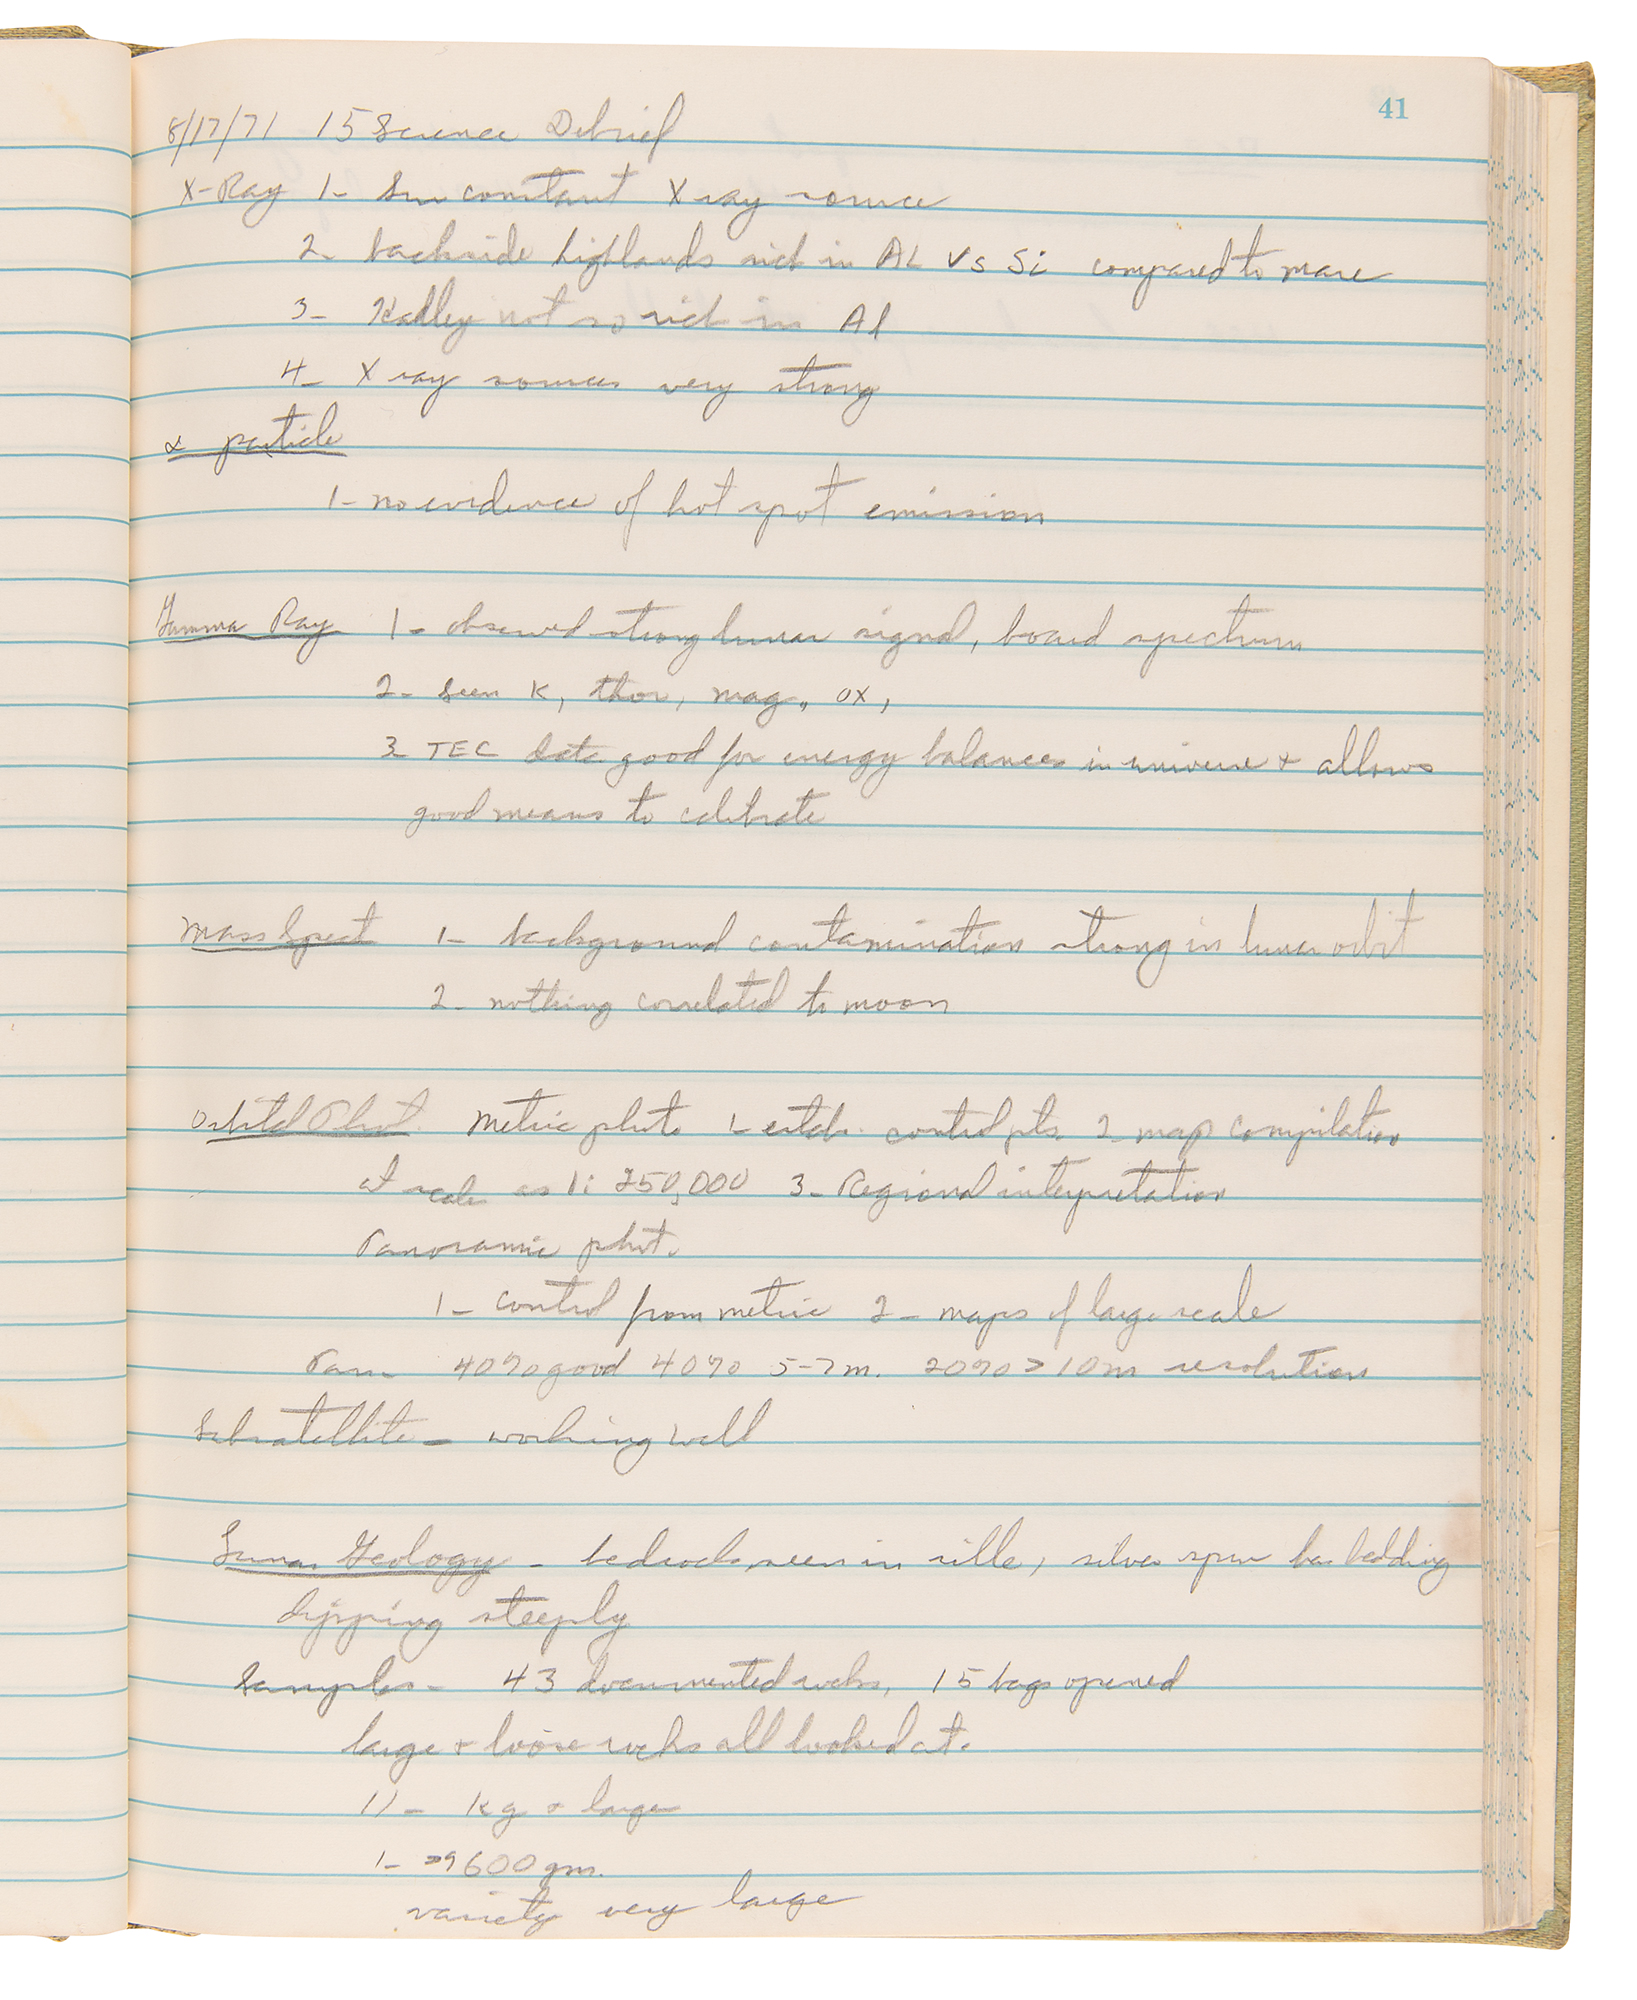 41
8/17/71 15 Science Debrief
X-Ray 1- Sun constant X ray source
2- backside highlands rich in AL vs Si compared to mare
3- Hadley not so rich in Al
4- X ray sources very strong
α particle
1- no evidence of hot spot emission
Gamma Ray 1- observed strong lunar signal, board spectrum
2- seen K, thor, mag., ox,
3 TEC data good for energy balances in universe + allows
good means to calibrate
Mass Spect 1- background contamination strong in lunar orbit
2- nothing correlated to moon
Orbital Phot. Metric photo 1- estab. control pts. 2- map compilation
at scale as 1:250,000 3- Regional interpretation
Panoramic phot.
1- control from metric 2- maps of large scale
Pan- 40% good 40% 5-7m. 20% > 10m resolution
Subsatellite - working well
Lunar Geology - bedrock seen in rille, silver spur has bedding
dipping steeply
Samples - 43 documented rocks, 15 bags opened
large + loose rocks all looked at.
11 - kg + large
1- 9600 gm.
variety very large